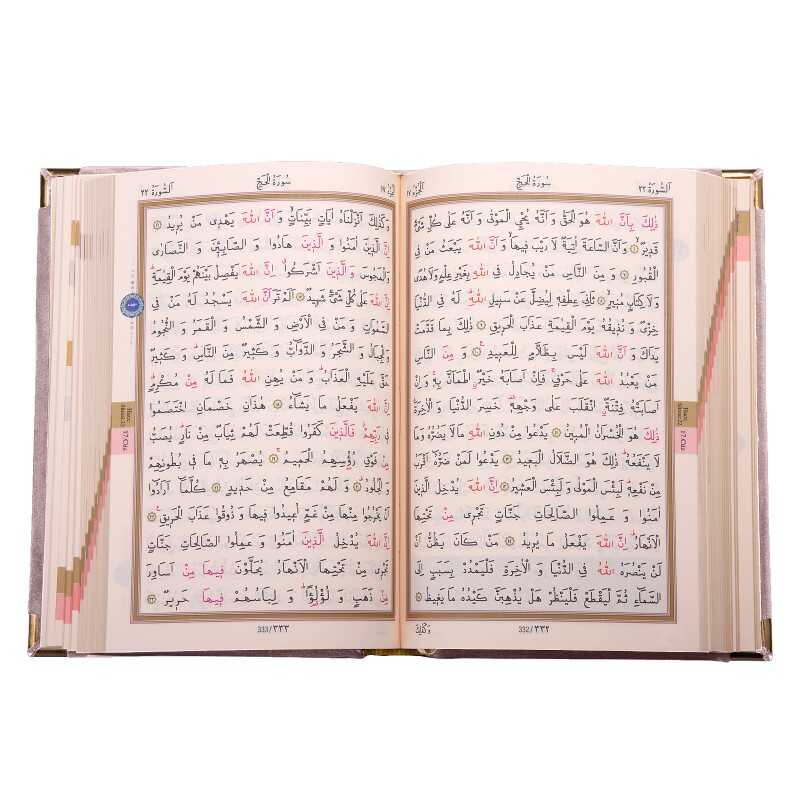 اَلسُّورَةُ ٢٢
سُورَةُ الْحَجِّ
اَلْجُزْءُ ١٧
ذٰلِكَ بِاَنَّ اللّٰهَ هُوَ الْحَقُّ وَ اَنَّهُ يُحْيِ الْمَوْتٰى وَ اَنَّهُ عَلٰى كُلِّ شَىْءٍ
قَدِيرٌ ۙ ﴿٦﴾ وَ اَنَّ السَّاعَةَ اٰتِيَةٌ لَا رَيْبَ فِيهَا ۙ وَ اَنَّ اللّٰهَ يَبْعَثُ مَنْ فِى
الْقُبُورِ ﴿٧﴾ وَ مِنَ النَّاسِ مَنْ يُجَادِلُ فِى اللّٰهِ بِغَيْرِ عِلْمٍ وَ لَا هُدًى
وَ لَا كِتَابٍ مُنِيرٍ ۙ ﴿٨﴾ ثَانِىَ عِطْفِهِ لِيُضِلَّ عَنْ سَبِيلِ اللّٰهِ ۜ لَهُ فِى الدُّنْيَا
خِزْىٌ وَ نُذِيقُهُ يَوْمَ الْقِيٰمَةِ عَذَابَ الْحَرِيقِ ﴿٩﴾ ذٰلِكَ بِمَا قَدَّمَتْ
يَدَاكَ وَ اَنَّ اللّٰهَ لَيْسَ بِظَلَّامٍ لِلْعَبِيدِ ۟ ﴿١٠﴾ وَ مِنَ النَّاسِ
مَنْ يَعْبُدُ اللّٰهَ عَلٰى حَرْفٍ ۚ فَاِنْ اَصَابَهُ خَيْرٌ ۨاطْمَاَنَّ بِهِ ۚ وَ اِنْ
اَصَابَتْهُ فِتْنَةٌ ۨانْقَلَبَ عَلٰى وَجْهِهِ ۠ خَسِرَ الدُّنْيَا وَ الْاٰخِرَةَ ۜ
ذٰلِكَ هُوَ الْخُسْرَانُ الْمُبِينُ ﴿١١﴾ يَدْعُوا مِنْ دُونِ اللّٰهِ مَا لَا يَضُرُّهُ وَ مَا
لَا يَنْفَعُهُ ۜ ذٰلِكَ هُوَ الضَّلَالُ الْبَعِيدُ ۚ ﴿١٢﴾ يَدْعُوا لَمَنْ ضَرُّهُ اَقْرَبُ
مِنْ نَفْعِهِ ۜ لَبِئْسَ الْمَوْلٰى وَ لَبِئْسَ الْعَشِيرُ ﴿١٣﴾ اِنَّ اللّٰهَ يُدْخِلُ الَّذِينَ
اٰمَنُوا وَ عَمِلُوا الصَّالِحَاتِ جَنَّاتٍ تَجْرِى مِنْ تَحْتِهَا
الْاَنْهَارُ ۜ اِنَّ اللّٰهَ يَفْعَلُ مَا يُرِيدُ ﴿١٤﴾ مَنْ كَانَ يَظُنُّ اَنْ
لَنْ يَنْصُرَهُ اللّٰهُ فِى الدُّنْيَا وَ الْاٰخِرَةِ فَلْيَمْدُدْ بِسَبَبٍ اِلَى
السَّمَاءِ ثُمَّ لْيَقْطَعْ فَلْيَنْظُرْ هَلْ يُذْهِبَنَّ كَيْدُهُ مَا يَغِيظُ ﴿١٥﴾
332/٣٣٢
وَ كَذٰلِكَ
Hacc Suresi-22
17.Cüz
اَلسُّورَةُ ٢٢
سُورَةُ الْحَجِّ
اَلْجُزْءُ ١٧
وَ كَذٰلِكَ اَنْزَلْنَاهُ اٰيَاتٍ بَيِّنَاتٍ ۙ وَ اَنَّ اللّٰهَ يَهْدِى مَنْ يُرِيدُ ﴿١٦﴾
اِنَّ الَّذِينَ اٰمَنُوا وَ الَّذِينَ هَادُوا وَ الصَّابِـِٔينَ وَ النَّصَارٰى
وَ الْمَجُوسَ وَ الَّذِينَ اَشْرَكُوا ۗ اِنَّ اللّٰهَ يَفْصِلُ بَيْنَهُمْ يَوْمَ الْقِيٰمَةِ ۜ
اِنَّ اللّٰهَ عَلٰى كُلِّ شَىْءٍ شَهِيدٌ ﴿١٧﴾ اَلَمْ تَرَ اَنَّ اللّٰهَ يَسْجُدُ لَهُ مَنْ فِى
السَّمٰوَاتِ وَ مَنْ فِى الْاَرْضِ وَ الشَّمْسُ وَ الْقَمَرُ وَ النُّجُومُ
وَ الْجِبَالُ وَ الشَّجَرُ وَ الدَّوَابُّ وَ كَثِيرٌ مِنَ النَّاسِ ۜ وَ كَثِيرٌ
حَقَّ عَلَيْهِ الْعَذَابُ ۜ وَ مَنْ يُهِنِ اللّٰهُ فَمَا لَهُ مِنْ مُكْرِمٍ ۜ
اِنَّ اللّٰهَ يَفْعَلُ مَا يَشَاءُ ﴿١٨﴾ هٰذَانِ خَصْمَانِ اخْتَصَمُوا
فِى رَبِّهِمْ ۘ فَالَّذِينَ كَفَرُوا قُطِّعَتْ لَهُمْ ثِيَابٌ مِنْ نَارٍ ۜ يُصَبُّ
مِنْ فَوْقِ رُؤُسِهِمُ الْحَمِيمُ ۚ ﴿١٩﴾ يُصْهَرُ بِهِ مَا فِى بُطُونِهِمْ
وَ الْجُلُودُ ۜ ﴿٢٠﴾ وَ لَهُمْ مَقَامِعُ مِنْ حَدِيدٍ ﴿٢١﴾ كُلَّمَا اَرَادُوا
اَنْ يَخْرُجُوا مِنْهَا مِنْ غَمٍّ اُعِيدُوا فِيهَا وَ ذُوقُوا عَذَابَ الْحَرِيقِ ۟ ﴿٢٢﴾
اِنَّ اللّٰهَ يُدْخِلُ الَّذِينَ اٰمَنُوا وَ عَمِلُوا الصَّالِحَاتِ جَنَّاتٍ
تَجْرِى مِنْ تَحْتِهَا الْاَنْهَارُ يُحَلَّوْنَ فِيهَا مِنْ اَسَاوِرَ
مِنْ ذَهَبٍ وَ لُؤْلُؤًا ۜ وَ لِبَاسُهُمْ فِيهَا حَرِيرٌ ﴿٢٣﴾
333/٣٣٣
Hacc Suresi-22
17.Cüz